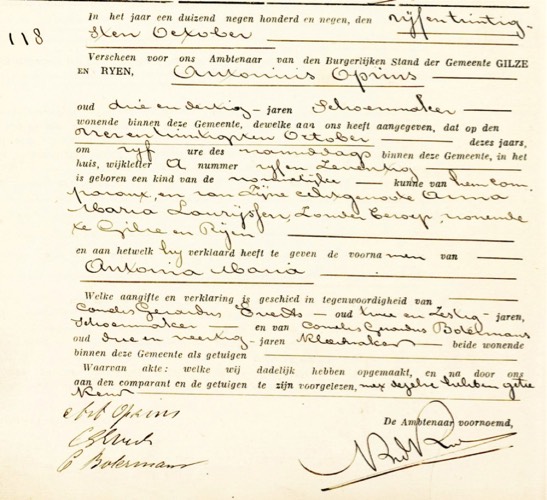 118
In het jaar een duizend negen honderd en negen, den vijfentwintig-
sten October
Verscheen voor ons Ambtenaar van den Burgerlijken Stand der Gemeente GILZE
EN RYEN, Antonius Oprins
oud drie en dertig - jaren Schoenmaker
wonende binnen deze Gemeente, dewelke aan ons heeft aangegeven, dat op den
October dezes jaars,
om vijf ure des namiddags binnen deze Gemeente, in het
huis, wijkletter A nummer vijfen zeventig
is geboren een kind van de vrouwelijke kunne van hem com-
parant, en van zijne echtgenoote Anna
Maria Laurijssen, zonder beroep, wonende
te Gilze en Rijen
en aan hetwelk hij verklaard heeft te geven de voorna men van
Antonia Maria
Welke aangifte en verklaring is geschied in tegenwoordigheid van
Cornelis Gerardus Everts - oud twee en zestig - jaren,
Schoenmaker en van Cornelis Gerardus Botermans
oud drie en veertig - jaren Kleermaker beide wonende
binnen deze Gemeente als getuigen
Waarvan akte: welke wij dadelijk hebben opgemaakt, en na door ons
aan den comparant en de getuigen te zijn voorgelezen, met dezelve hebben getee
kend
Oprins
De Ambtenaar voornoemd,
CGEverts
C Botermans